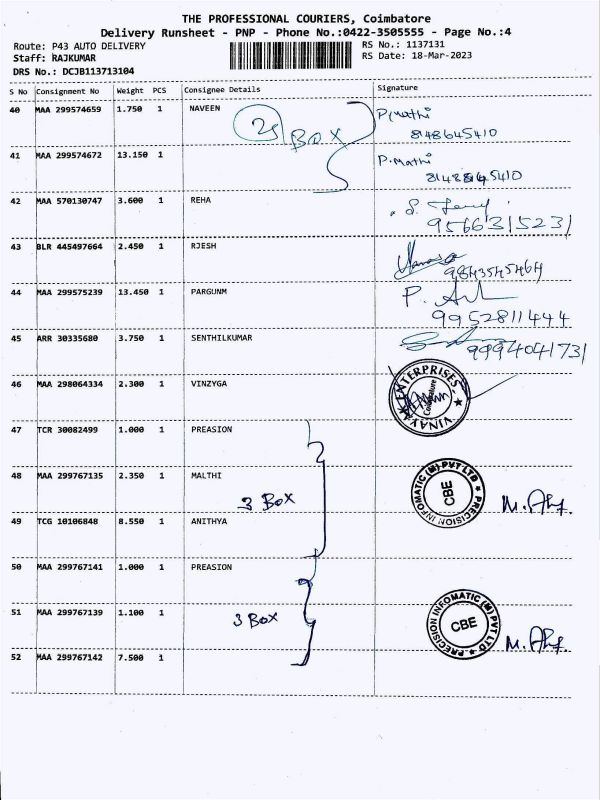 THE PROFESSIONAL COURIERS, Coimbatore
Delivery Runsheet - PNP - Phone No.:0422-3505555 - Page No.:4
Route: P43 AUTO DELIVERY
Staff: RAJKUMAR
DRS No.: DCJB113713104
RS No.: 1137131
RS Date: 18-Mar-2023
S No Consignment No Weight PCS Consignee Details Signature
40 MAA 299574659 1.750 1 NAVEEN P.Mathi
8148645410
2 BOX
41 MAA 299574672 13.150 1 P.Mathi
42 MAA 570130747 3.600 1 REHA
9566315231
43 BLR 445497664 2.450 1 RJESH
9843545464
44 MAA 299575239 13.450 1 PARGUNM
9952811444
45 ARR 30335680 3.750 1 SENTHILKUMAR
9994041731
46 MAA 298064334 2.300 1 VINZYGA
VINAYAK ENTERPRISES
Coimbatore
47 TCR 30082499 1.000 1 PREASION
48 MAA 299767135 2.350 1 MALTHI
3 BOX
PRECISION INFOMATIC (M) PVT LTD
CBE
49 TCG 10106848 8.550 1 ANITHYA
50 MAA 299767141 1.000 1 PREASION
51 MAA 299767139 1.100 1
3 BOX
PRECISION INFOMATIC (M) PVT LTD
CBE
52 MAA 299767142 7.500 1